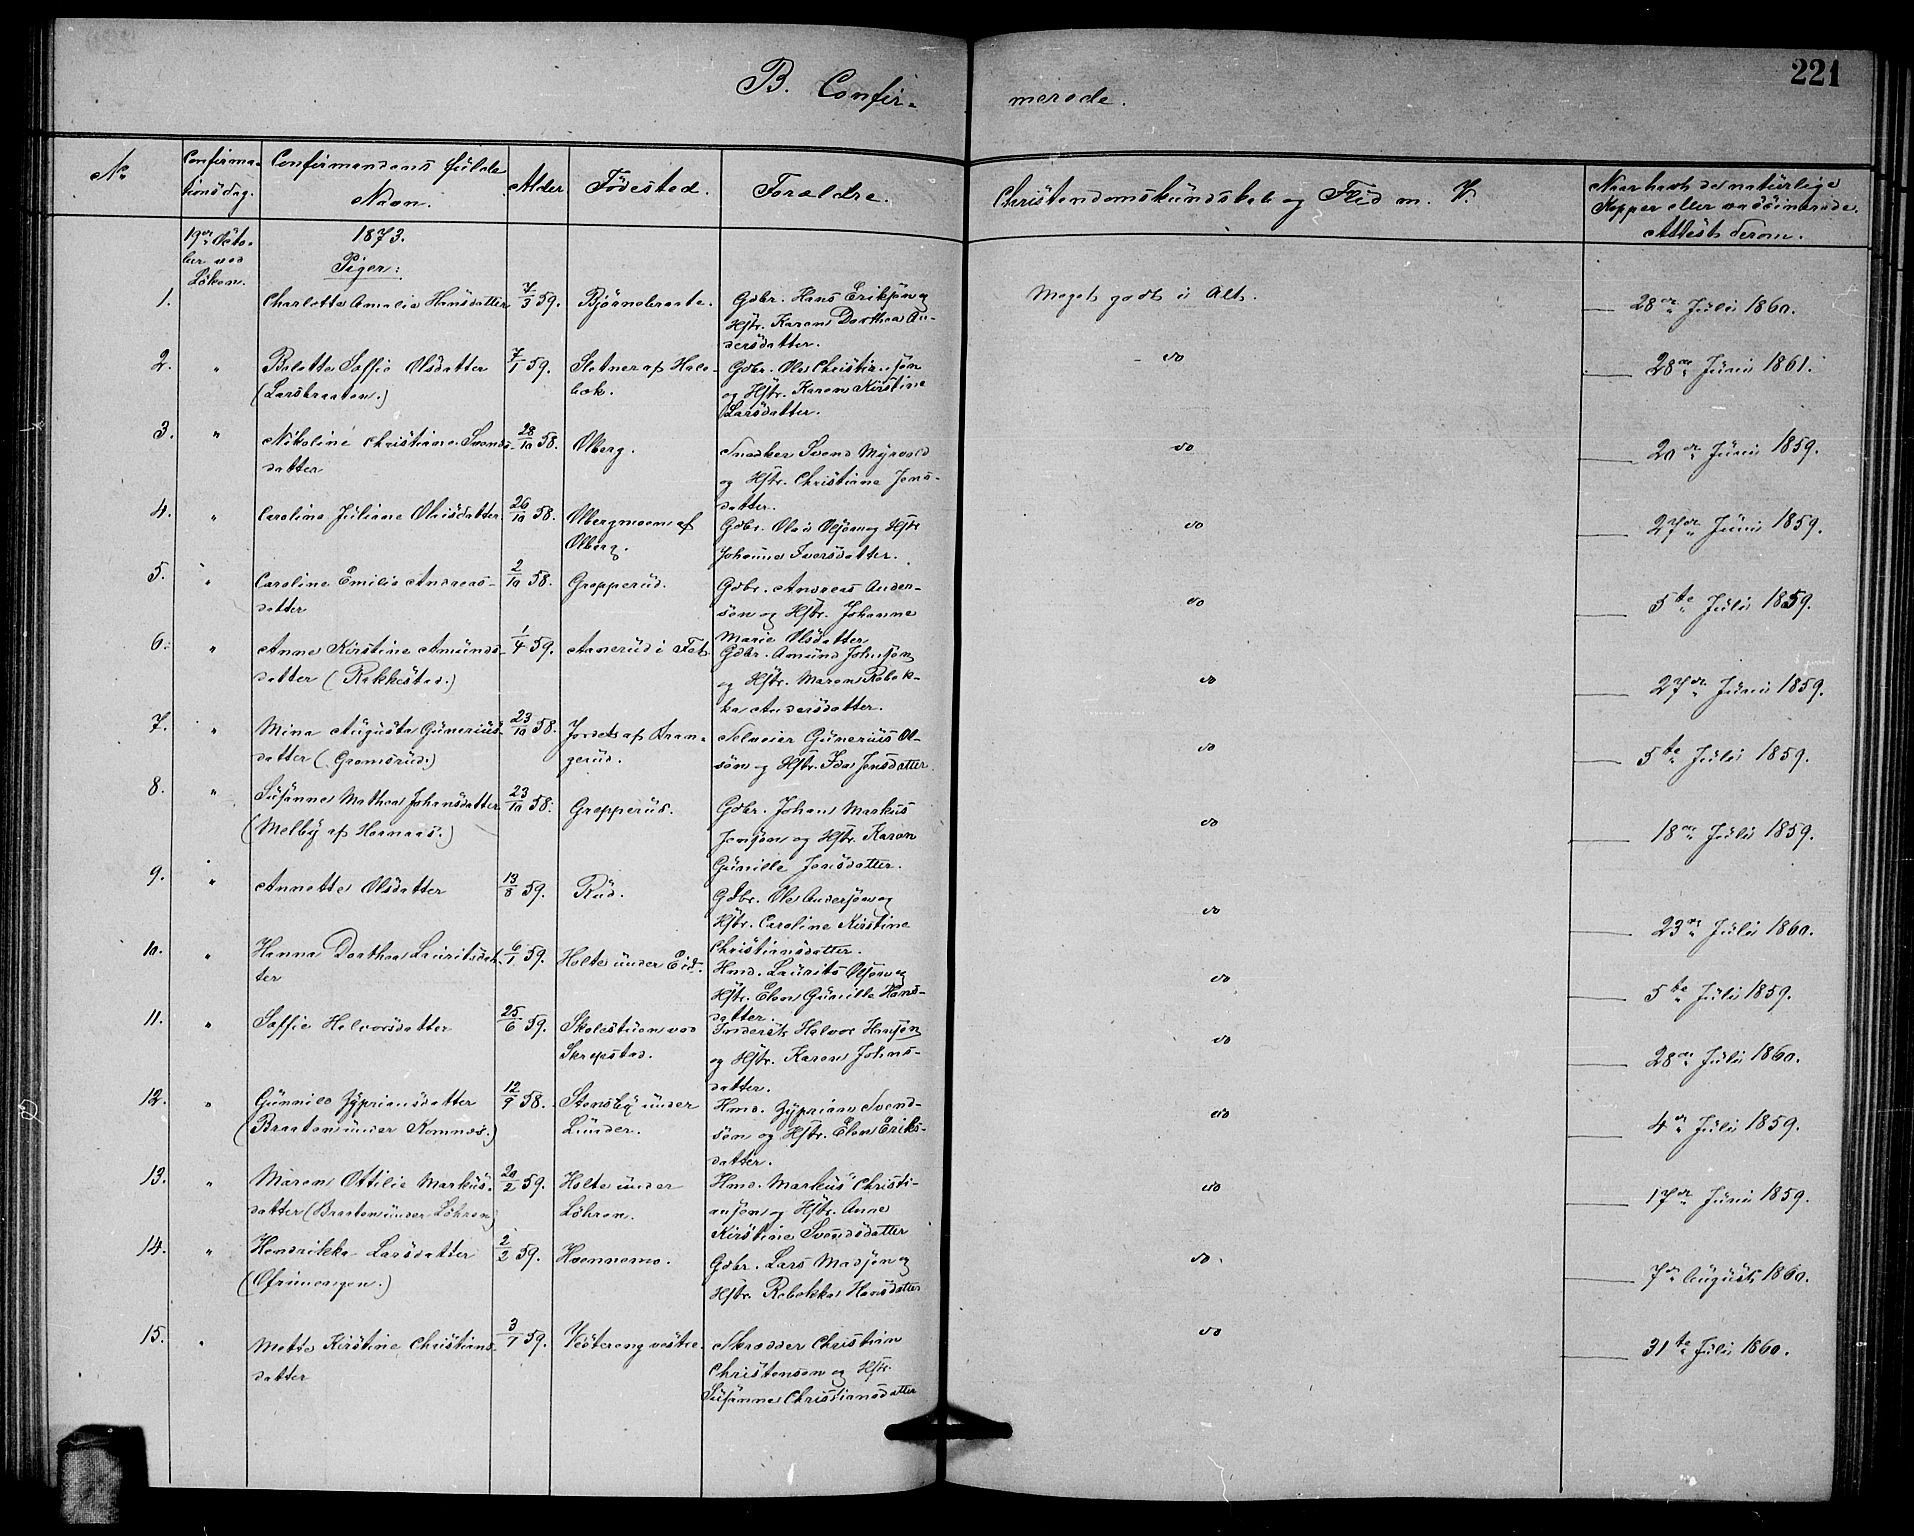 221
B. Confir-
merede.
No
Confirma-
tionsdag.
Confirmandens fulde
Navn.
Alder
Fødested.
Forældre.
Christendomskundskab og Flid m. V.
Naar havt de naturlige
Kopper eller vassinerede.
Attest derom.
19de Octo-
ber ved
Løken.
1873.
Piger:
1. Charlotte Amalie Hansdatter 7/3 59. Bjørnebraate. Gdbr. Hans Eriksøn og
Hstr. Karen Dorthea An-
dersdatter.
Meget godt i Alt.
28de Juli 1860.
2. " Balette Soffie Olsdatter 7/1 59. Slotner af Hale-
(Larsbraaten.) bæk.
Gdbr. Ole Christiansøn
og Hstr. Karen Kirstine
Larsdatter.
do
28de Juni 1861.
3. " Nikoline Christiane Svends- 28/10 58. Olberg.
datter
Snedker Svend Myrvold
og Hstr. Christiane Jens-
datter.
do
20de Juni 1859.
4. " Caroline Juliane Olaisdatter 26/10 58. Olbergmoen af
Olberg.
Gdbr. Olai Olsøn og Hstr
Johanne Iversdatter.
do
27de Juni 1859.
5. " Caroline Emilie Andreas- 2/10 58. Grepperud.
datter
Gdbr. Andreas Ander-
søn og Hstr. Johanne
Marie Olsdatter
do
5te Juli 1859.
6. " Anne Kirstine Amunds- 1/4 59. Aanerud i Fet
datter (Rakkestad.)
Gdbr. Amund Johnsøn
og Hstr. Maren Rebek-
ka Andersdatter.
do
27de Juni 1859.
7. " Mina Augusta Gunerius- 23/10 58. Jordet af Kran-
datter (Gromsrud.) gerud.
Selveier Gunerius Ol-
søn og Hstr. Ida Jensdatter
do
5te Juli 1859.
8. " Susanne Mathea Johansdatter 23/10 58. Grepperud.
(Melby af Haanaas.)
Gdbr. Johan Markus
Jensøn og Hstr. Karen
Gunille Jensdatter.
do
18de Juli 1859.
9. " Annette Olsdatter 13/8 59. Rud.
Gdbr. Ole Andersøn og
Hstr. Caroline Kirstine
Christiansdatter.
do
23de Juli 1860.
10. " Hanna Dorthea Lauritsdat- 6/1 59. Holte under Eid.
ter
Hmd. Laurits Olsøn og
Hstr. Elen Gunille Hans-
datter.
do
5te Juli 1859.
11. " Soffie Halvorsdatter 25/6 59. Skolestuen ved
Skrepstad.
Inderst Halvor Hansøn
og Hstr. Karen Johns-
datter.
do
28de Juli 1860.
12. " Gunnild Zyprionsdatter 12/9 58. Stensby under
(Braaten under Komnæs.) Lunder.
Hmd. Zyprian Svend-
søn og Hstr. Elen Eriks-
datter.
do
4de Juli 1859.
13. " Maren Ottilie Markus- 20/2 59. Holte under
datter (Braaten under Løhren) Løhren.
Hmd. Markus Christi-
ansøn og Hstr. Anne
Kirstine Svendsdatter
do
17de Juni 1859.
14. " Hendrikke Larsdatter 2/2 59. Hænnemo.
Gdbr. Lars Madsøn og
Hstr. Rebekka Hansdatter
do.
7de August 1860.
15. " Mette Kirstine Christians- 3/7 59. Vestereng vestre.
datter
Skrædder Christian
Christensen og Hstr.
Susanne Christiansdatter
do
31te Juli 1860.